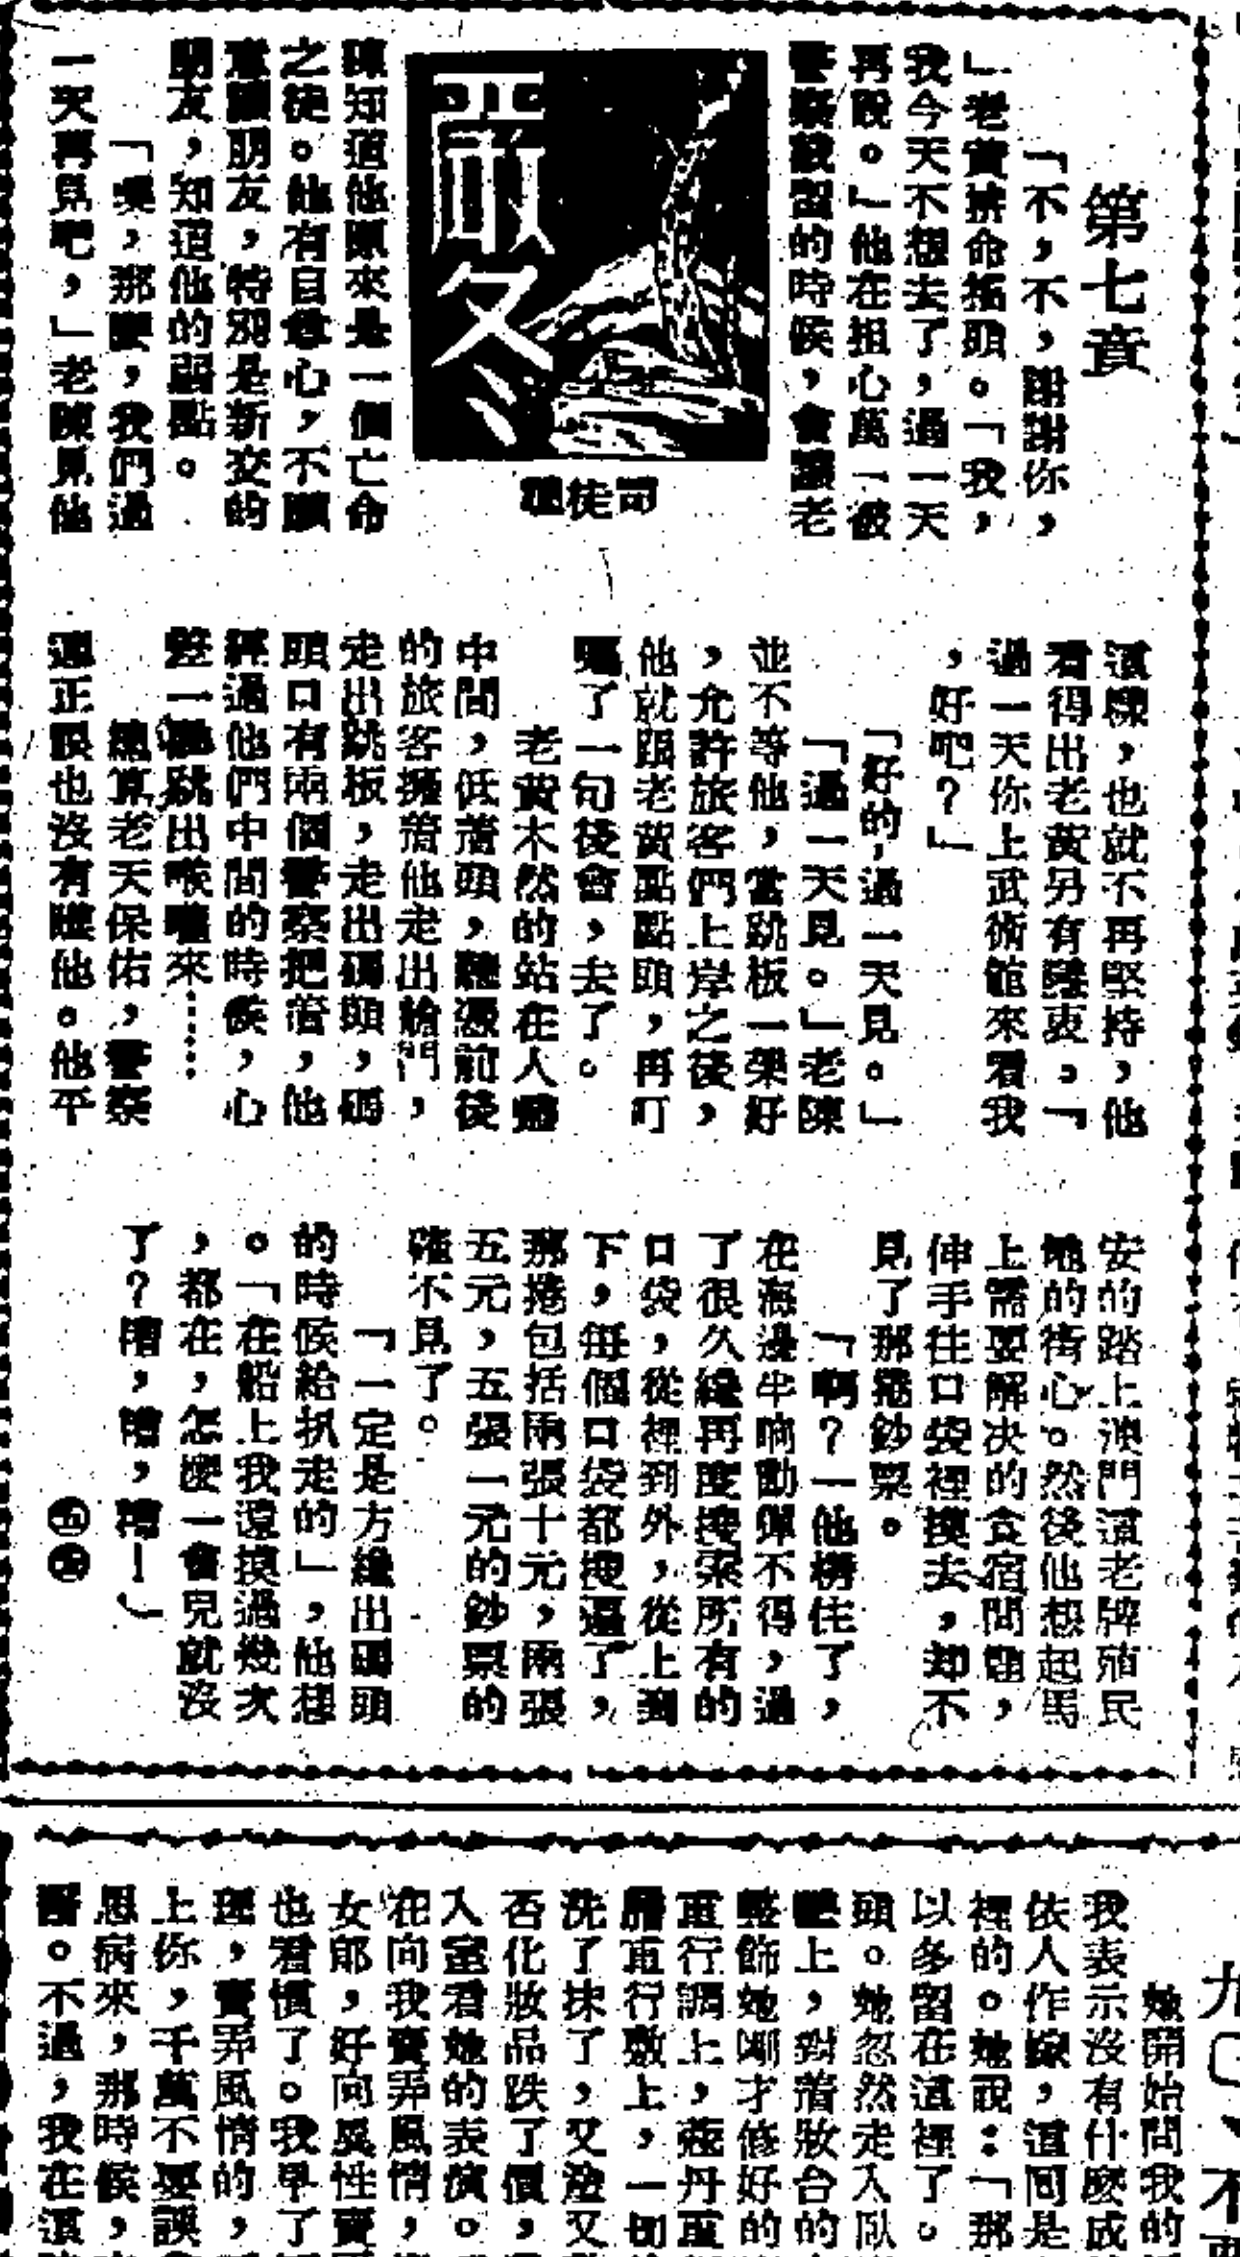 第七章
「不，不，謝謝你，
」老黃拚命搖頭。「我，
我今天不想去了，過一天
再說。」他在担心萬一被
警察截留的時候，會讓老
嚴冬
司徒
陳知道他原來是一個亡命
之徒。他有自尊心，不願
意讓朋友，特別是新交的
朋友，知道他的弱點。
「噢，那麼，我們過
一天再見吧，」老陳見他
這樣，也就不再堅持，他
看得出老黃另有隱衷，「
過一天你上武術館來看我
，好吧？」
「好的，過一天見。」
「過一天見。」老陳
並不等他，當跳板一架好
，允許旅客們上岸之後，
他就跟老黃點點頭，再叮
囑了一句後會，去了。
老黃木然的站在人叢
中間，低着頭，聽憑前後
的旅客擁着他走出艙門，
走出跳板，走出碼頭，碼
頭口有兩個警察把着，他
經過他們中間的時候，心
差一點跳出喉嚨來……
總算老天保佑，警察
連正眼也沒有瞧他。他平
安的踏上澳門這老牌殖民
地的街心。然後他想起馬
上需要解決的食宿問題，
伸手往口袋裡摸去，却不
見了那捲鈔票。
「啊？一他楞住了，
在海邊半晌動彈不得，過
了很久纔再度搜索所有的
口袋，從裡到外，從上到
下，每個口袋都搜遍了，
那捲包括兩張十元，兩張
五元，五張一元的鈔票的
確不見了。
「一定是方纔出碼頭
的時候給扒走的」，他想
。「在船上我還摸過幾次
，都在，怎麼一會兒就沒
了？糟，糟，糟！」
她開始問我的
我表示沒有什麼成
依人作嫁，這間是
裡的。她說：「那
以多留在這裡了。
頭。她忽然走入臥
上，對着妝台的
飾她剛才修好的
重行調上，蔻丹重
重行敷上，一切
洗了抹了，又塗又
否化妝品跌了價，
入室看她的表演。
在向我賣弄風情，
女郎，好向異性賣
也看慣了。我早了
理，賣弄風情的，
上你，千萬不要誤
思病來，那時候，
。不過，我在這